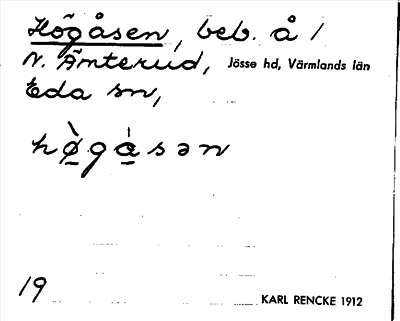 Högåsen, beb. å /
N. Ämterud, Jösse hd, Värmlands län
Eda sn,
hø̀gåsən
19 KARL RENCKE 1912